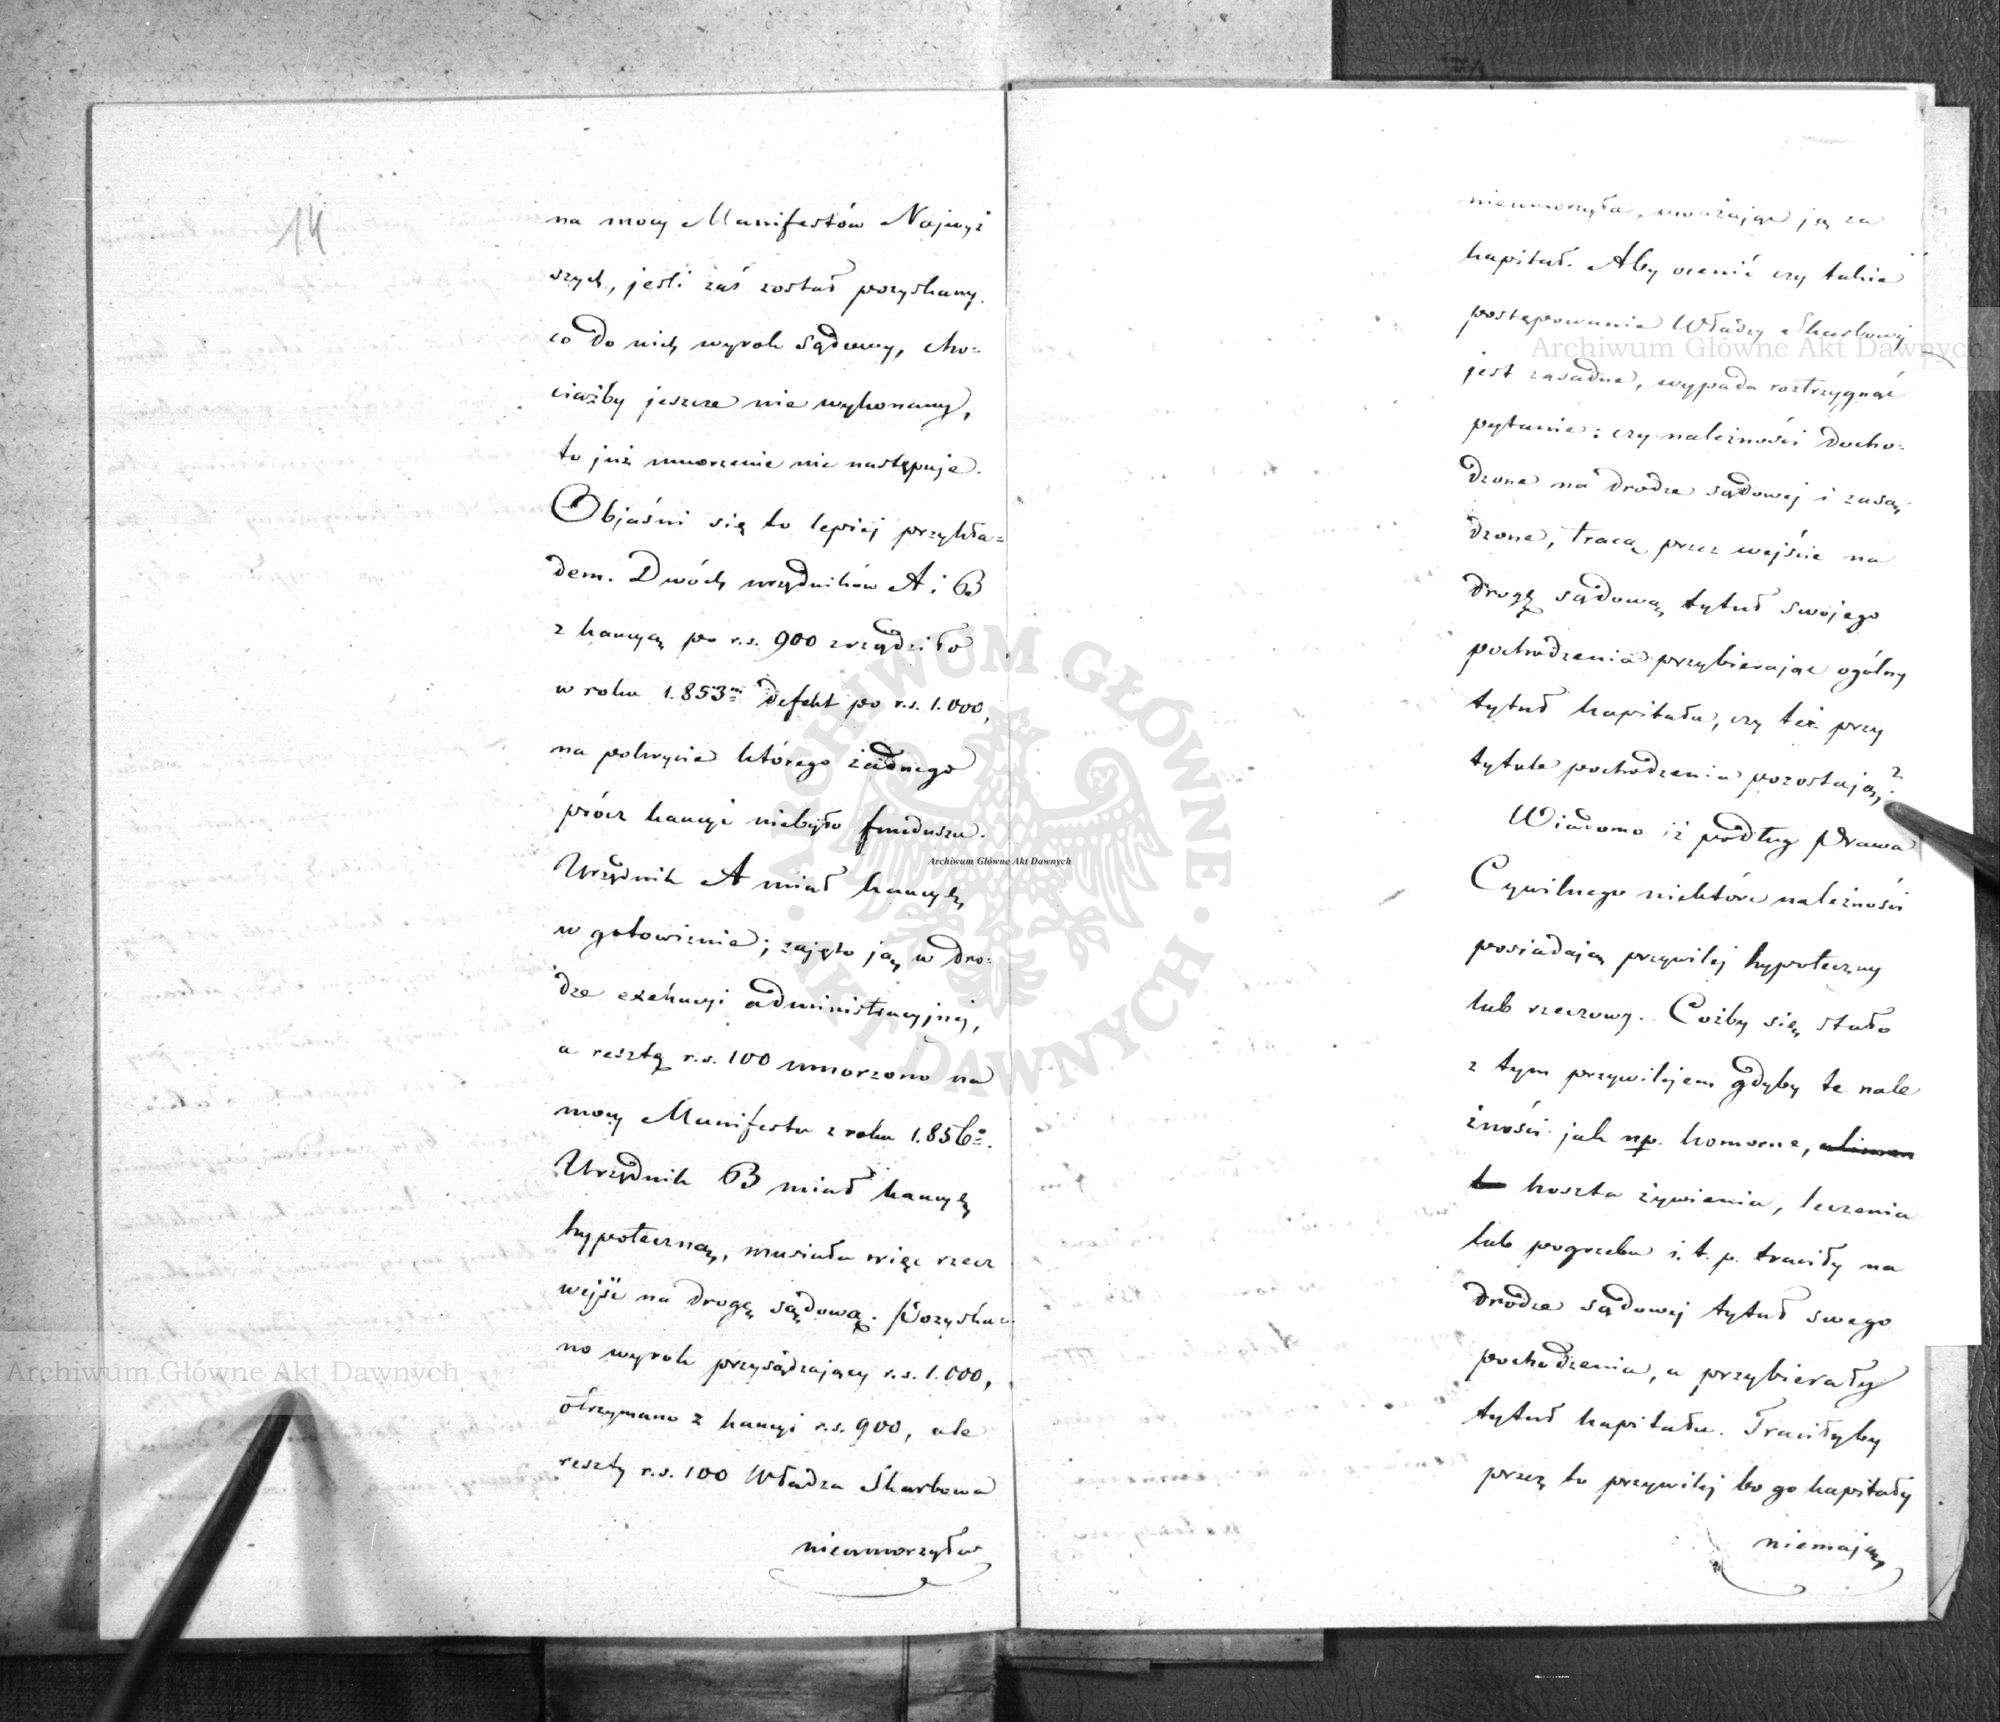 14
na mocy Manifestów Najwyż
szych, jeśli zaś został pozyskany
co do nich wyrok sądowy, cho-
ciażby jeszcze nie wykonany,
to już umorzenie nie następuje.
Objaśni się to lepiej przykła-
dem. Dwóch urzędników A i B
z kaucyą po r.s. 900 zrządziło
w roku 1.853m defekt po r.s. 1.000,
na pokrycie którego żadnego
prócz kaucyi niebyło funduszu.
Urzędnik A miał kaucyę
w gotowiznie; zajęto ją w dro-
dze exekucyi administracyjnej,
a resztę r.s. 100 umorzono na
mocy Manifestu z roku 1.856o.
Urzędnik B miał kaucyę
hypoteczną, musiała więc rzecz
wejść na drogę sądową. Pozyska-
no wyrok przysądzający r.s. 1.000,
otrzymano z kaucyi r.s. 900, ale
reszty r.s. 100 Władza Skarbowa
nieumorzyła
nieumorzyła, uważając ją za
kapitał. Aby ocenić czy takie
postępowanie Władzy Skarbowej
jest zasadne, wypada roztrzygnąć
pytanie: czy należności docho-
dzone na drodze sądowej i zasą-
dzone, tracą przez wejście na
drogę sądową tytuł swojego
pochodzenia przybierając ogólny
tytuł kapitału, czy też przy
tytule pochodzenia pozostają?
Wiadomo iż podług Prawa
Cywilnego niektóre należności
posiadają przywilej hypoteczny
lub rzeczowy. Cożby się stało
z tym przywilejem gdyby te nale
żności jak np. komorne, alimen
ta koszta żywienia, leczenia
lub pogrzebu i.t.p. traciły na
drodze sądowej tytuł swego
pochodzenia, a przybierały
tytuł kapitału. Traciłyby
przez to przywilej bo go kapitały
niemają
Archiwum Główne Akt Dawnych
Archiwum Główne Akt Dawnych
Archiwum Główne Akt Dawnych
ARCHIWUM GŁÓWNE AKT DAWNYCH